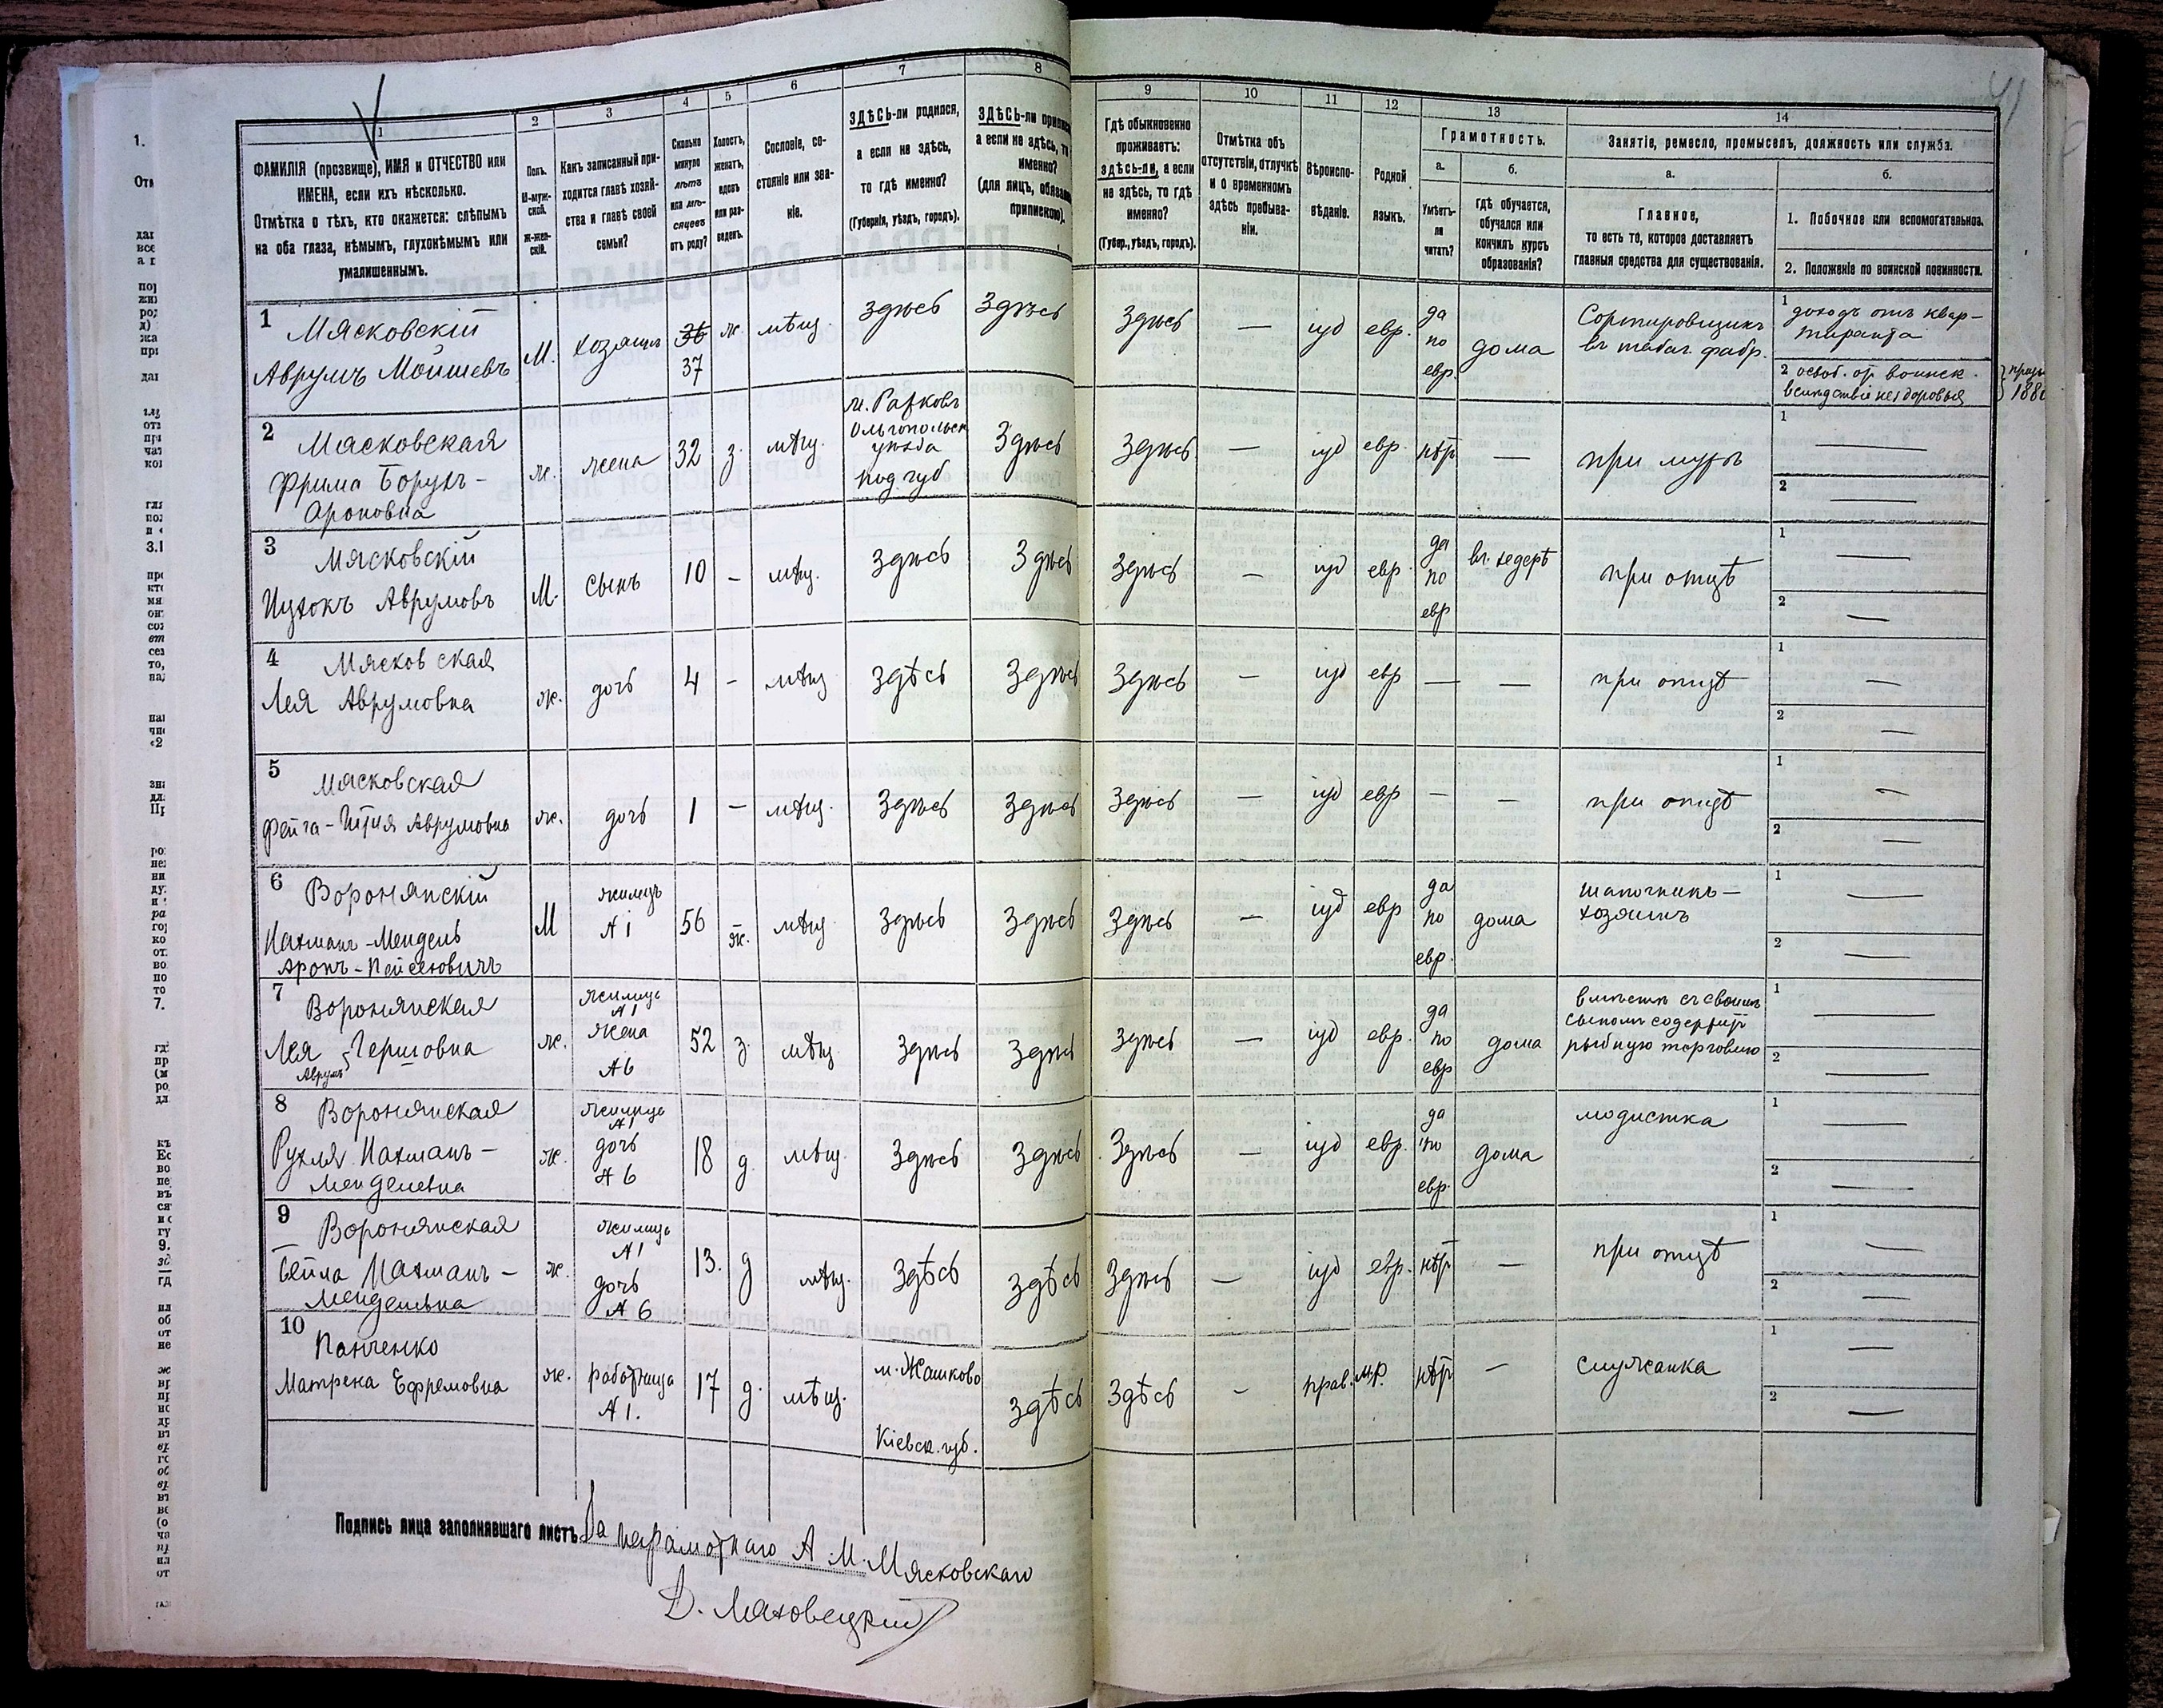 1 2 3 4 5 6 7 8 9 10 11 12 13 14
ФАМИЛІЯ (прозвище), ИМЯ и ОТЧЕСТВО или
ИМЕНА, если ихъ нѣсколько.
Отмѣтка о тѣхъ, кто окажется: слѣпымъ
на оба глаза, нѣмымъ, глухонѣмымъ или
умалишеннымъ.
Полъ.
М-муж-
ской.
Ж-жен-
скій.
Какъ записанный при-
ходится главѣ хозяй-
ства и главѣ своей
семьи?
Сколько
минуло
лѣтъ
или мѣ-
сяцевъ
отъ роду?
Холостъ,
женатъ,
вдовъ
или раз-
веденъ.
Сословіе, со-
стояніе или зва-
ніе.
ЗДѢСЬ-ли родился,
а если не здѣсь,
то гдѣ именно?
(Губернія, уѣздъ, городъ).
ЗДѢСЬ-ли
а если не здѣсь, то
именно?
(для лицъ,
припискою).
Гдѣ обыкновенно
проживаетъ:
здѣсь-ли, а если
не здѣсь, то гдѣ
именно?
(Губер., уѣздъ, городъ).
Отмѣтка объ
отсутствіи, отлучкѣ
и о временномъ
здѣсь пребыва-
ніи.
Вѣроиспо-
вѣданіе.
Родной
языкъ.
Грамотность.
а.
Умѣетъ-
ли
читать?
б.
гдѣ обучается,
обучался или
кончилъ курсъ
образованія?
Занятіе, ремесло, промыселъ, должность или служба.
а.
Главное,
то есть то, которое доставляетъ
главныя средства для существованія.
б.
1. Побочное или вспомогательное.
2. Положеніе по воинской повинности.
1 Мясковскій
Аврумъ Мойшевъ
М. хозяинъ 36 37 ж. мѣщ. Здѣсь Здѣсь Здѣсь — іуд евр. да по евр. дома
Сортировщикъ
въ табач. фабр.
1 доходъ отъ квар-
тиранта
2 освоб. от воинск.
вслѣдствіе нездоровья
2 Мясковская
Фрима Борухъ-
Ароновна
ж. жена 32 з. мѣщ.
Ольгопольск
уѣзда
под. губ
Здѣсь Здѣсь — іуд евр. нѣт — при мужѣ
1 —
2 —
3 Мясковскій
Ицхокъ Аврумовъ
М. сынъ 10 - мѣщ. Здѣсь Здѣсь Здѣсь — іуд евр. да по евр въ хедерѣ при отцѣ
1 —
2 —
4 Мясковская
Лея Аврумовна
ж. дочь 4 - мѣщ Здѣсь Здѣсь Здѣсь — іуд евр — — при отцѣ
1 —
2 —
5 Мясковская
Фейга- Аврумовна
ж. дочь 1 - мѣщ. Здѣсь Здѣсь Здѣсь — іуд евр — — при отцѣ
1 —
2 —
6 Воронянскій
Нахманъ-Мендель
Аронъ-Пейсеховичъ
М жилецъ № 1 56 ж. мѣщ. Здѣсь Здѣсь Здѣсь — іуд евр да по евр. дома
шапочникъ-
хозяинъ
1 —
2 —
7 Воронянская
Лея Аврумъ-Гершовна
ж. жилица № 1 жена № 6 52 з. мѣщ. Здѣсь Здѣсь Здѣсь — іуд евр. да по евр дома
вмѣстѣ съ своимъ
сыномъ содержит
рыбную торговлю
1 —
2 —
8 Воронянская
Рухля Нахманъ-
Менделевна
ж. жилица № 1 дочь № 6 18 д. мѣщ. Здѣсь Здѣсь Здѣсь — іуд евр. да по евр. дома модистка
1 —
2 —
9 Воронянская
Бейла Нахманъ-
Менделевна
ж. жилица № 1 дочь № 6 13. д мѣщ. Здѣсь Здѣсь Здѣсь — іуд евр. нѣт — при отцѣ
1 —
2 —
10 Панченко
Матрена Ефремовна
ж. работница № 1. 17 д. мѣщ. м. Жашково
Кіевск. губ.
здѣсь Здѣсь — прав. м.р. нѣт — служанка
1 —
2 —
Подпись лица заполнявшаго листъ За неграмотнаго А. М. Мясковскаго